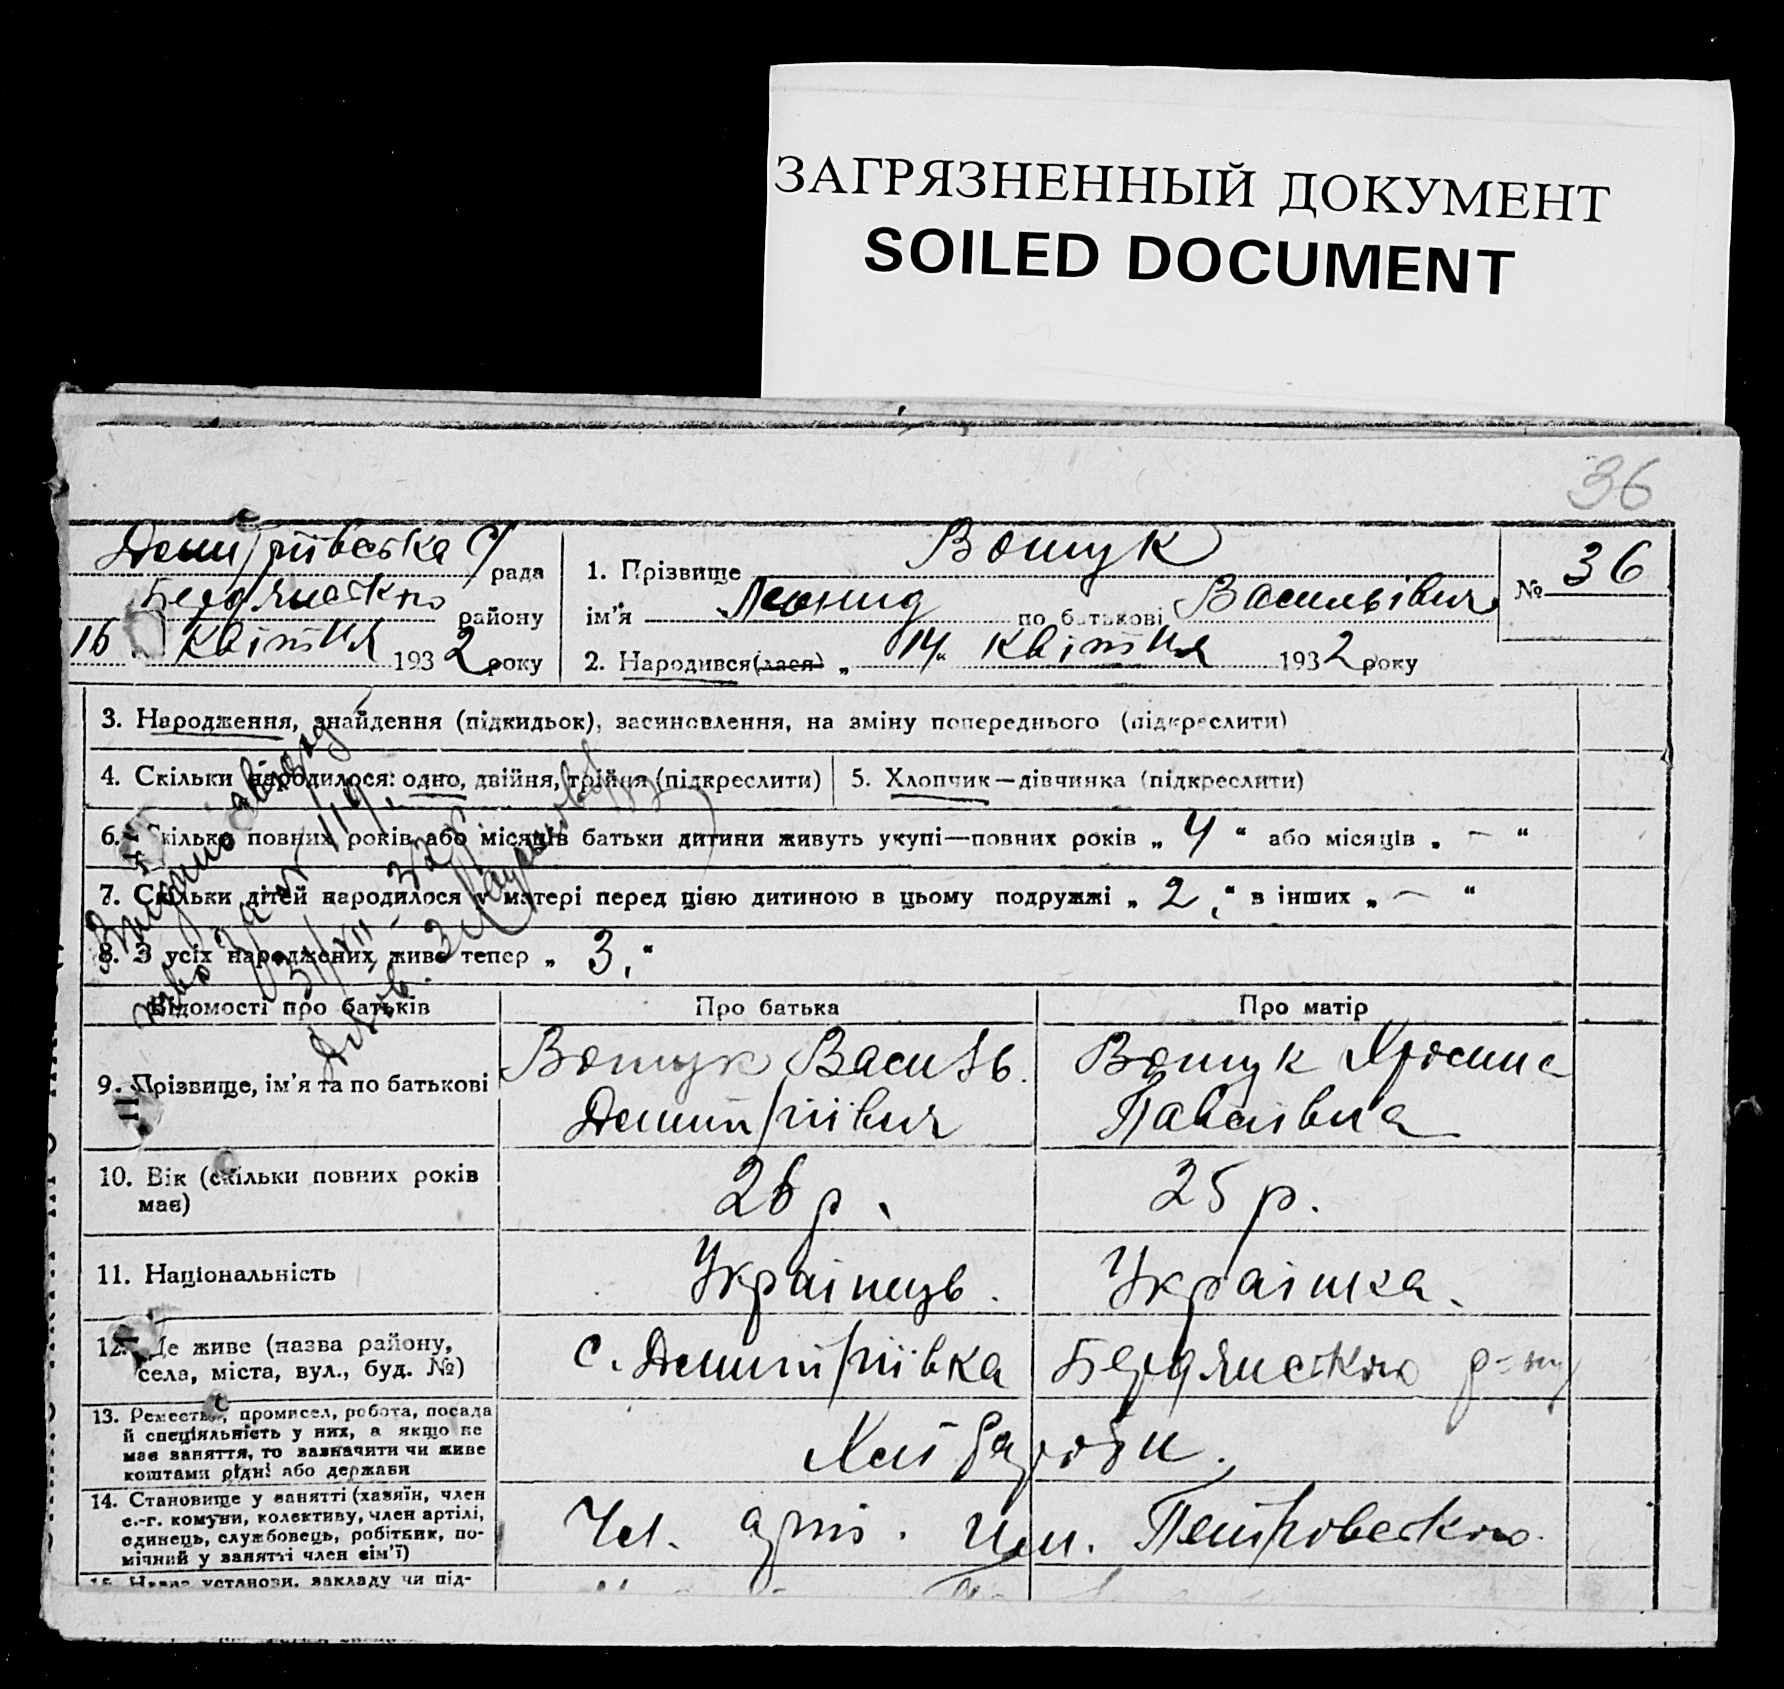 ЗАГРЯЗНЕННЫЙ ДОКУМЕНТ
SOILED DOCUMENT
36
Дмитріївська С/рада
Бердянского району
16 квітня 1932 року
1. Прізвище Вощук
ім'я Леонид по батькові Васильівич
2. Народився(лася) „14" квітня 1932 року
№ 36
3. Народження, знайдення (підкидьок), засиновлення, на зміну попереднього (підкреслити)
4. Скільки народилося: одно, двійня, трійня (підкреслити)
5. Хлопчик—дівчинка (підкреслити)
6. Скілько повних років або місяців батьки дитини живуть укупі—повних років „ 4 " або місяців „ – "
7. Скільки дітей народилося у матері перед цією дитиною в цьому подружжі „ 2, " в інших „ – "
8. З усіх народжених живе тепер „ 3, "
Відомості про батьків
Про батька
Про матір
9. Прізвище, ім'я та по батькові
Вощук Василь
Дмитріівич
Вощук
Павлівна
10. Вік (скільки повних років
має)
26 р.
25 р.
11. Національність
Українець.
Українка.
12. Де живе (назва району,
села, міста, вул., буд. №)
с. Дмитріївка Бердянского р-ну
13. Ремество, промисел, робота, посада
й спеціяльність у них, а якщо не
має заняття, то зазначити чи живе
коштами рідні або держави
Хліборобы.
14. Становище у занятті (хазяїн, член
с.-г. комуни, колективу, член артілі,
одинець, службовець, робітник, по-
мічний у занятті член сім'ї)
Чл. арт. им. Петровського.
15. Назва установи, закладу чи під-